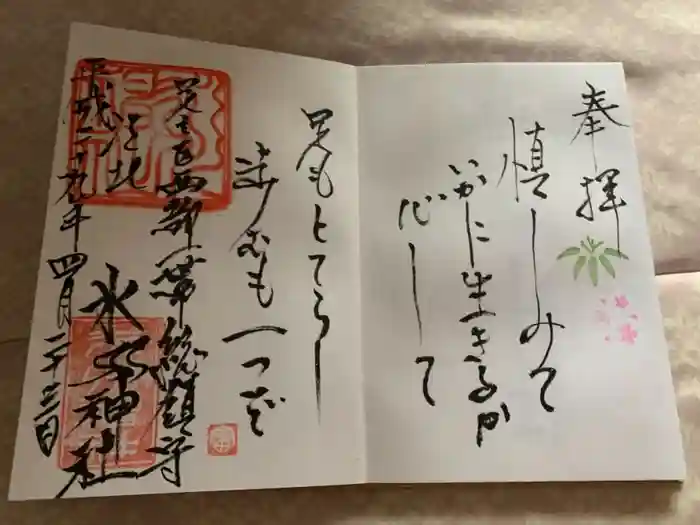 奉拝
慎しみて
いかに生きるか
心して
足もとてらし
歩むも一つぞ
足立区西部一帯総鎮守
江北
氷川神社
平成二十九年四月二十三日